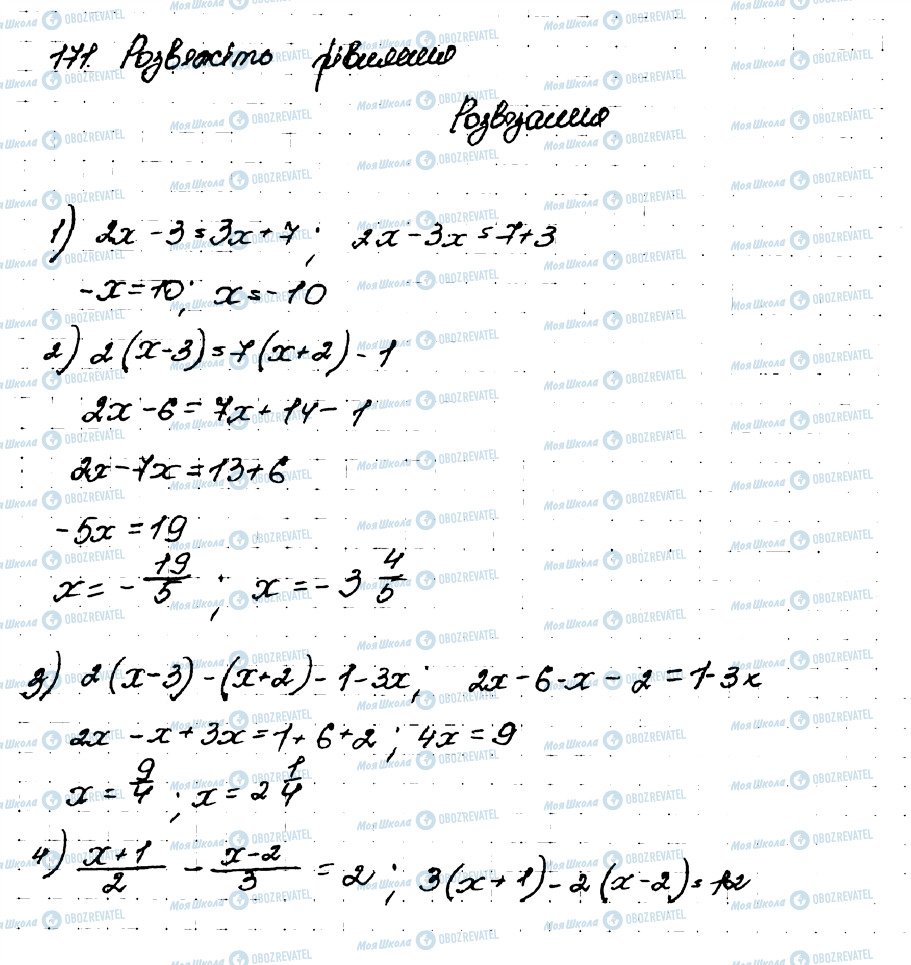 171. Розвяжіть рівняння
Розвязання
1) 2x - 3 = 3x + 7; 2x - 3x = 7 + 3
-x = 10; x = -10
2) 2(x-3) = 7(x+2) - 1
2x - 6 = 7x + 14 - 1
2x - 7x = 13 + 6
-5x = 19
x = - 19/5; x = -3 4/5
3) 2(x-3) - (x+2) - 1 - 3x; 2x - 6 - x - 2 = 1 - 3x
2x - x + 3x = 1 + 6 + 2; 4x = 9
x = 9/4; x = 2 1/4
4) (x+1)/2 - (x-2)/3 = 2; 3(x+1) - 2(x-2) = 12